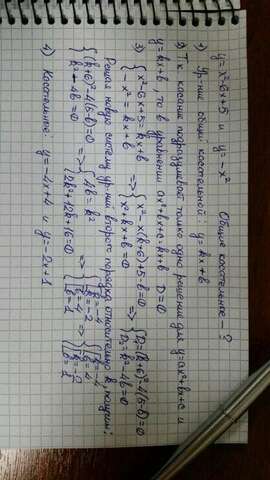 y=x²-6x+5 и y=-x² Общие касательные - ?
1) Ур-ние общей касательной: y=kx+b
2) Т.к касание подразумевает только одно решение для y=ax²+bx+c и
y=kx+b, то в уравнении ax²+bx+c=kx+b D=0
3) {x²-6x+5=kx+b => {x²-x(k+6)+5-b=0 => {D₁=(k+6)²-4(5-b)=0
{-x²=kx+b {x²+kx+b=0 {D₂=k²-4b=0
Решая новую систему ур-ний второго порядка относительно k, получим:
{(k+6)²-4(5-b)=0 => {4b=k² => {[k=-4 => [{k=-4
{k²-4b=0 {2k²+12k+16=0 {[k=-2 {b=4
{[b=4 [{k=-2
{[b=1 {b=1
4) Касательные: y=-4x+4 и y=-2x+1